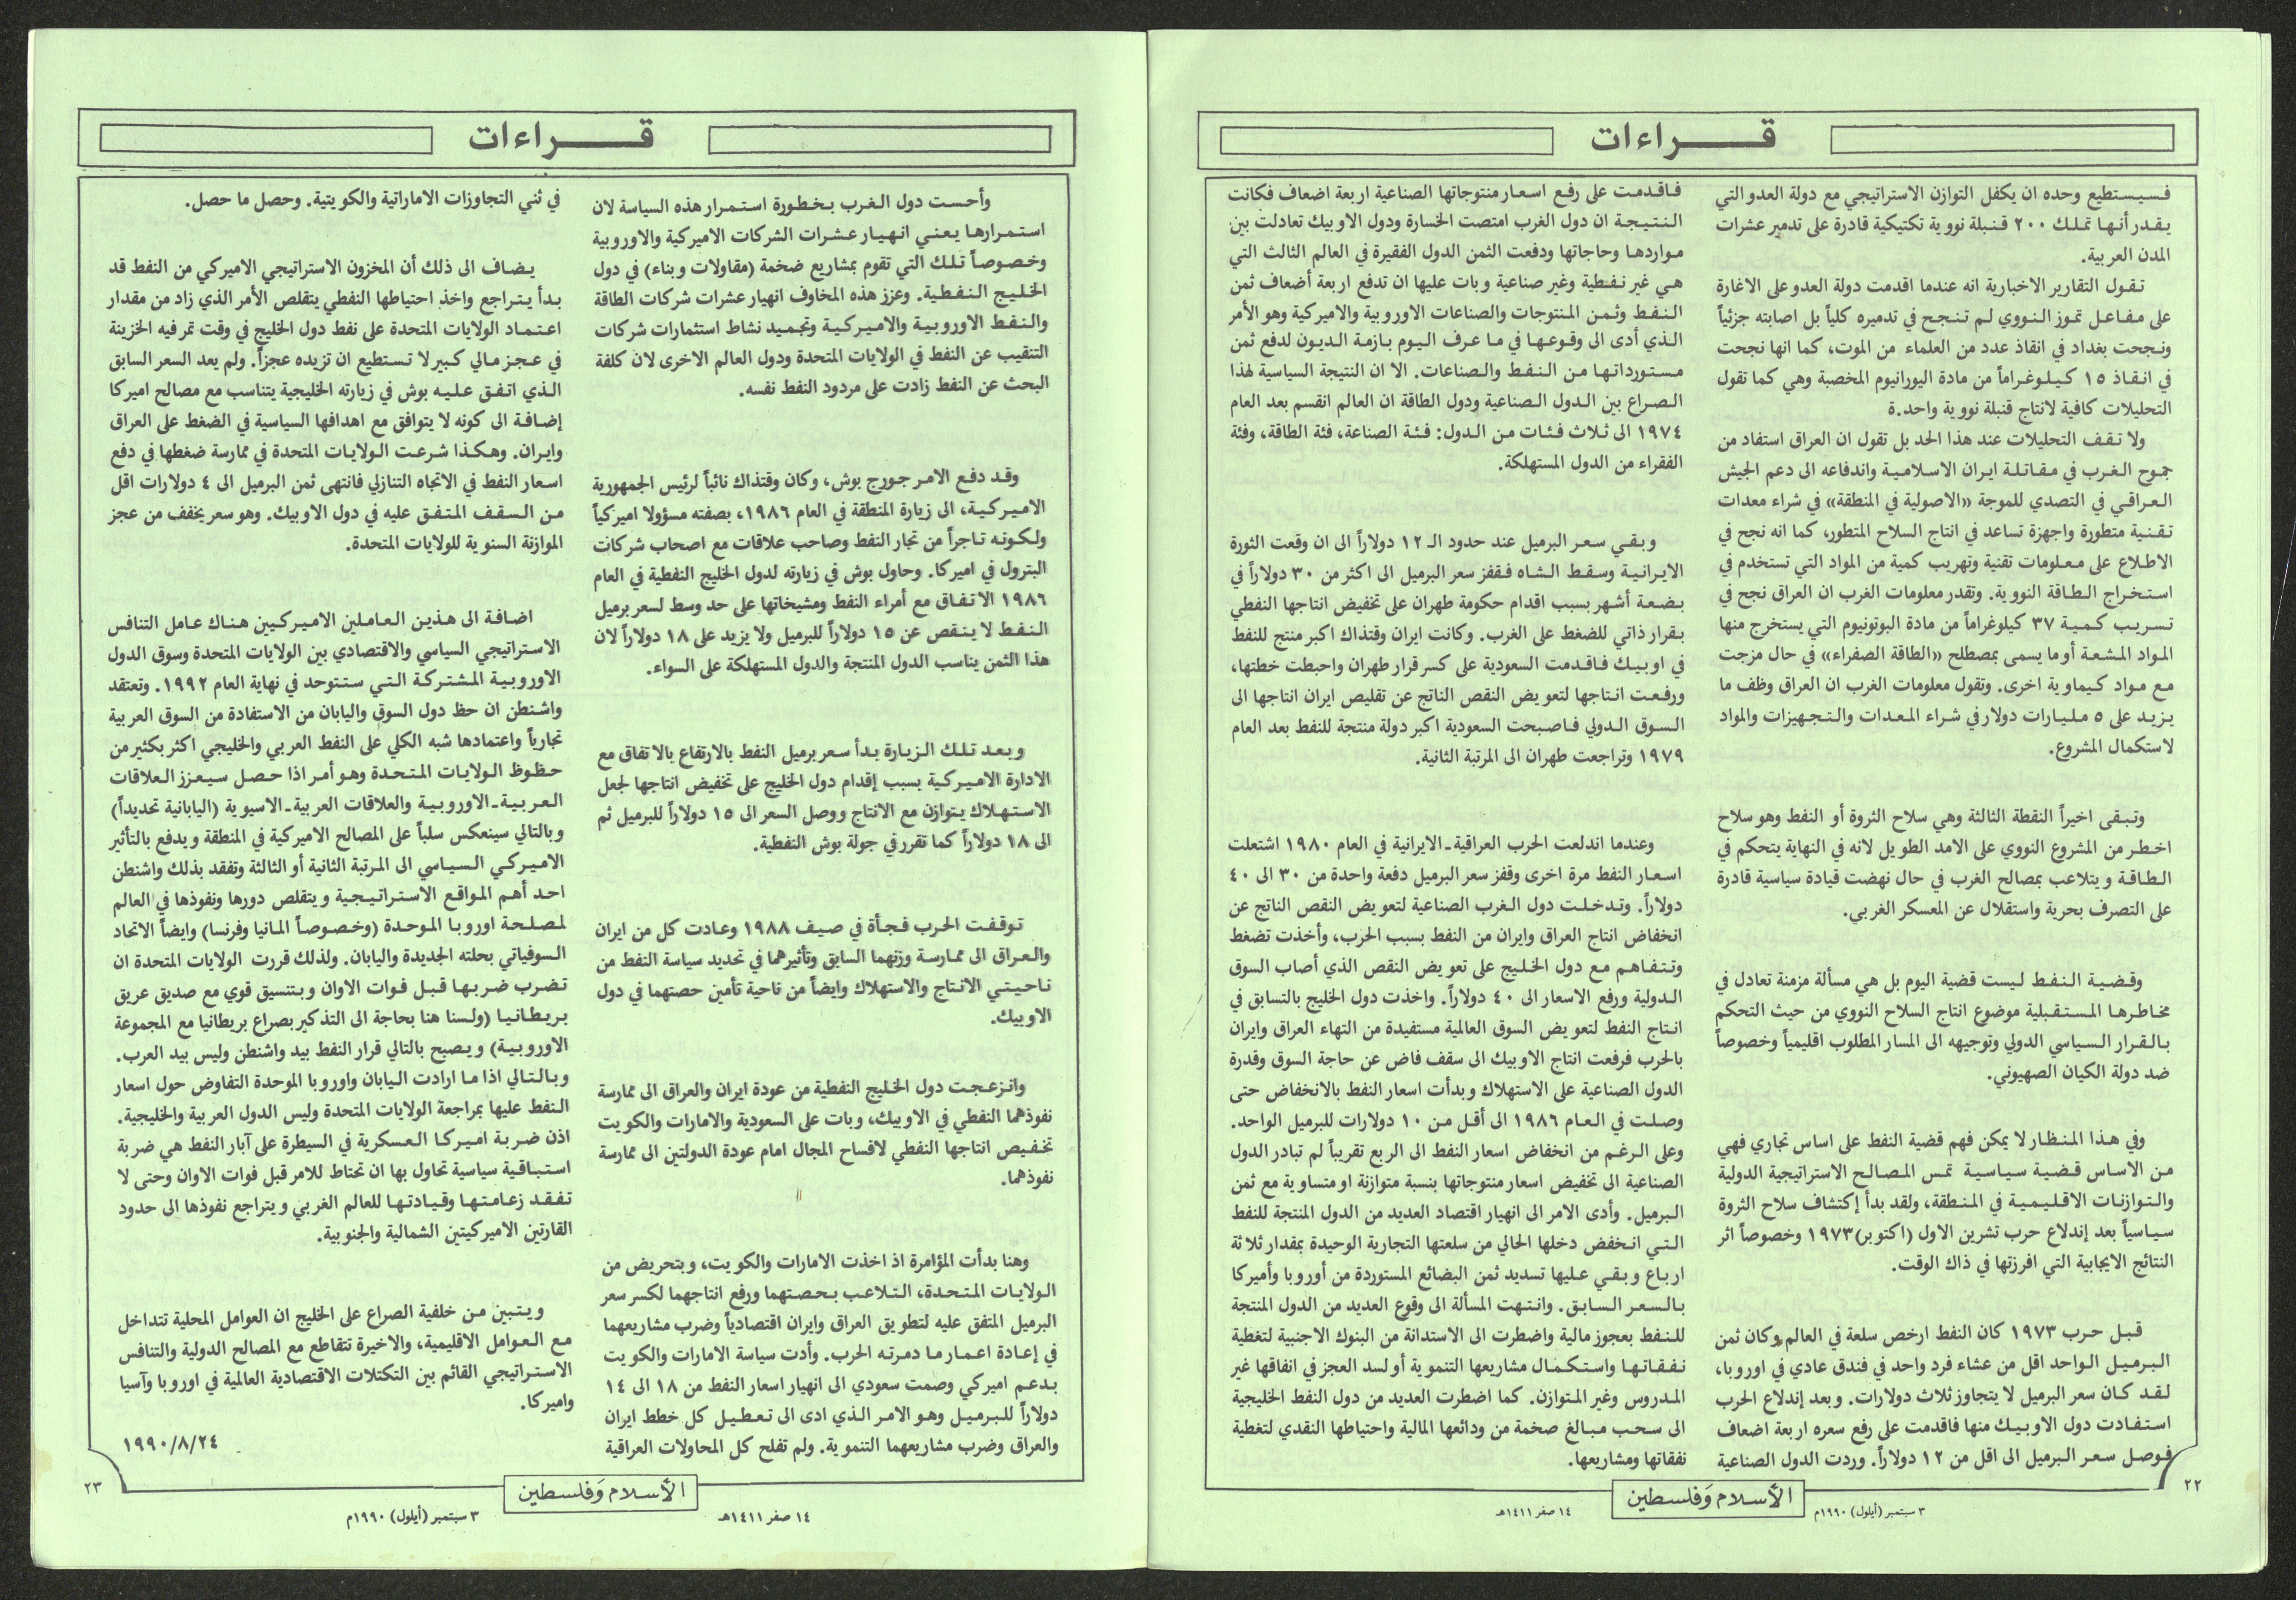 قـــراءات
فـسـيـستطيع وحده ان يكفل التوازن الاستراتيجي مع دولة العدو التي
يـقـدر أنـهـا تملـك ٢٠٠ قـنـبلة نووية تكتيكية قادرة على تدمير عشرات
المدن العربية.
تـقـول التقارير الاخبارية انه عندما اقدمت دولة العدو على الاغارة
على مـفـاعـل تموز الـنـووي لـم تـنـجـح في تدميره كلياً بل اصابته جزئياً
ونـجـحت بغداد في انقاذ عدد من العلماء من الموت، كما انها نجحت
في انـقـاذ ١٥ كـيـلـوغـراماً من مادة اليورانيوم المخصبة وهي كما تقول
التحليلات كافية لانتاج قنبلة نووية واحد.ة
ولا تـقـف التحليلات عند هذا الحد بل تقول ان العراق استفاد من
جموح الـغـرب في مـقـاتـلـة ايـران الاسـلامـيـة واندفاعه الى دعم الجيش
الـعـراقـي في التصدي للموجة «الاصولية في المنطقة» في شراء معدات
تـقـنـية متطورة واجهزة تساعد في انتاج السلاح المتطور، كما انه نجح في
الاطـلاع على مـعـلـومات تقنية وتهريب كمية من المواد التي تستخدم في
اسـتـخـراج الـطـاقة النووية. وتقدر معلومات الغرب ان العراق نجح في
تـسـريـب كـمـيـة ٣٧ كيلوغراماً من مادة البوتونيوم التي يستخرج منها
المـواد المـشـعـة أو ما يسمى بمصطلح «الطاقة الصفراء» في حال مزجت
مـع مـواد كـيـماوية اخرى. وتقول معلومات الغرب ان العراق وظف ما
يـزيـد على ٥ مـلـيـارات دولار في شـراء المـعـدات والـتـجـهيزات والمواد
لاستكمال المشروع.
وتـبـقى اخيراً النقطة الثالثة وهي سلاح الثروة أو النفط وهو سلاح
اخـطـر من المشروع النووي على الامد الطويل لانه في النهاية يتحكم في
الـطـاقـة ويتلاعب بمصالح الغرب في حال نهضت قيادة سياسية قادرة
على التصرف بحرية واستقلال عن المعسكر الغربي.
وقـضـيـة الـنـفـط لـيست قضية اليوم بل هي مسألة مزمنة تعادل في
مخـاطـرهـا المـسـتـقـبلية موضوع انتاج السلاح النووي من حيث التحكم
بـالـقـرار السـياسي الدولي وتوجيهه الى المسار المطلوب اقليمياً وخصوصاً
ضد دولة الكيان الصهيوني.
وفي هـذا المـنـظـار لا يمكن فهم قضية النفط على اساس تجاري فهي
مـن الاساس قـضـيـة سـيـاسـيـة تمـس المـصـالـح الاستراتيجية الدولية
والـتـوازنـات الاقـلـيـمـيـة في المـنـطقة، ولقد بدأ إكتشاف سلاح الثروة
سـيـاسـياً بعد إندلاع حرب تشرين الاول (اكتوبر) ١٩٧٣ وخصوصاً اثر
النتائج الايجابية التي افرزتها في ذاك الوقت.
قـبـل حـرب ١٩٧٣ كان النفط ارخص سلعة في العالم وكان ثمن
الـبـرمـيـل الـواحـد اقل من عشاء فرد واحد في فندق عادي في اوروبا،
لـقـد كـان سعر البرميل لا يتجاوز ثلاث دولارات. وبعد إندلاع الحرب
اسـتـفـادت دول الاوبـيـك منها فاقدمت على رفع سعره اربعة اضعاف
فـوصـل سـعـر الـبرميل الى اقل من ١٢ دولاراً. وردت الدول الصناعية
فـاقـدمـت على رفـع اسـعـار منتوجاتها الصناعية اربعة اضعاف فكانت
الـنـتـيـجـة ان دول الغرب امتصت الخسارة ودول الاوبيك تعادلت بين
مـواردهـا وحاجاتها ودفعت الثمن الدول الفقيرة في العالم الثالث التي
هـي غير نـفـطية وغير صناعية وبات عليها ان تدفع اربعة أضعاف ثمن
الـنـفـط وثـمـن المـنتوجات والصناعات الاوروبية والاميركية وهو الأمر
الـذي أدى الى وقـوعـهـا في مـا عـرف الـيـوم بـازمـة الـديـون لدفع ثمن
مـسـتـورداتـهـا مـن الـنـفـط والـصـناعات. الا ان النتيجة السياسية لهذا
الـصـراع بين الـدول الـصـناعية ودول الطاقة ان العالم انقسم بعد العام
١٩٧٤ الى ثـلاث فـئـات مـن الـدول: فـئـة الصناعة، فئة الطاقة، وفئة
الفقراء من الدول المستهلكة.
وبـقـي سـعـر البرميل عند حدود الـ ١٢ دولاراً الى ان وقعت الثورة
الايـرانـيـة وسـقـط الـشـاه فـقفز سعر البرميل الى اكثر من ٣٠ دولاراً في
بـضـعـة أشـهـر بسبب اقدام حكومة طهران على تخفيض انتاجها النفطي
بـقـرار ذاتي للضغط على الغرب. وكانت ايران وقتذاك اكبر منتج للنفط
في اوبـيـك فـاقـدمت السعودية على كسر قرار طهران واحبطت خطتها،
ورفـعـت انـتاجها لتعويض النقص الناتج عن تقليص ايران انتاجها الى
الـسـوق الـدولي فـاصـبـحت السعودية اكبر دولة منتجة للنفط بعد العام
١٩٧٩ وتراجعت طهران الى المرتبة الثانية.
وعندما اندلعت الحرب العراقية ـ الايرانية في العام ١٩٨٠ اشتعلت
اسـعـار النفط مرة اخرى وقفز سعر البرميل دفعة واحدة من ٣٠ الى ٤٠
دولاراً. وتـدخـلـت دول الـغرب الصناعية لتعويض النقص الناتج عن
انخفاض انتاج العراق وايران من النفط بسبب الحرب، وأخذت تضغط
وتـتـفـاهـم مـع دول الخـلـيـج على تعويض النقص الذي أصاب السوق
الـدولية ورفع الاسعار الى ٤٠ دولاراً. واخذت دول الخليج بالتسابق في
انـتـاج النفط لتعويض السوق العالمية مستفيدة من التهاء العراق وايران
بالحرب فرفعت انتاج الاوبيك الى سقف فاض عن حاجة السوق وقدرة
الدول الصناعية على الاستهلاك وبدأت اسعار النفط بالانخفاض حتى
وصـلـت في الـعـام ١٩٨٦ الى أقـل مـن ١٠ دولارات للبرميل الواحد.
وعلى الـرغـم من انخفاض اسعار النفط الى الربع تقريباً لم تبادر الدول
الصناعية الى تخفيض اسعار منتوجاتها بنسبة متوازنة او متساوية مع ثمن
الـبـرميل. وأدى الامر الى انهيار اقتصاد العديد من الدول المنتجة للنفط
الـتـي انـخـفض دخلها الحالي من سلعتها التجارية الوحيدة بمقدار ثلاثة
اربـاع وبـقـي عـلـيها تسديد ثمن البضائع المستوردة من أوروبا وأميركا
بـالـسـعـر السـابـق. وانـتـهت المسألة الى وقوع العديد من الدول المنتجة
للـنـفـط بعجوز مالية واضطرت الى الاستدانة من البنوك الاجنبية لتغطية
نـفـقـاتـهـا واسـتـكـمـال مشاريعها التنموية أو لسد العجز في انفاقها غير
المـدروس وغير المـتـوازن. كما اضطرت العديد من دول النفط الخليجية
الى سـحـب مـبـالـغ ضخمة من ودائعها المالية واحتياطها النقدي لتغطية
نفقاتها ومشاريعها.
٢٢
٣ سبتمبر (أيلول) ١٩٩٠م
الأسلام وَفلسطين
١٤ صفر ١٤١١هـ
قـــراءات
وأحـسـت دول الـغـرب بـخـطـورة اسـتـمـرار هذه السياسة لان
اسـتـمـرارهـا يـعـنـي انـهـيـار عـشـرات الشركات الاميركية والاوروبية
وخـصـوصـاً تـلـك التي تقوم بمشاريع ضخمة (مقاولات وبناء) في دول
الخـلـيـج الـنـفـطـية. وعزز هذه المخاوف انهيار عشرات شركات الطاقة
والـنـفـط الاوروبـيـة والامـيـركـيـة وتجـمـيد نشاط استثمارات شركات
التنقيب عن النفط في الولايات المتحدة ودول العالم الاخرى لان كلفة
البحث عن النفط زادت على مردود النفط نفسه.
وقـد دفـع الامـر جـورج بوش، وكان وقتذاك نائباً لرئيس الجمهورية
الامـيـركـيـة، الى زيارة المنطقة في العام ١٩٨٦، بصفته مسؤولا اميركياً
ولـكـونـه تـاجـراً من تجار النفط وصاحب علاقات مع اصحاب شركات
البترول في اميركا. وحاول بوش في زيارته لدول الخليج النفطية في العام
١٩٨٦ الاتـفـاق مع أمراء النفط ومشيخاتها على حد وسط لسعر برميل
الـنـفـط لا يـنـقص عن ١٥ دولاراً للبرميل ولا يزيد على ١٨ دولاراً لان
هذا الثمن يناسب الدول المنتجة والدول المستهلكة على السواء.
وبـعـد تـلـك الـزيـارة بـدأ سـعر برميل النفط بالارتفاع بالاتفاق مع
الادارة الامـيـركـيـة بسبب إقدام دول الخليج على تخفيض انتاجها لجعل
الاسـتـهـلاك يـتوازن مع الانتاج ووصل السعر الى ١٥ دولاراً للبرميل ثم
الى ١٨ دولاراً كما تقرر في جولة بوش النفطية.
تـوقـفـت الحـرب فـجـأة في صـيـف ١٩٨٨ وعـادت كل من ايران
والـعـراق الى ممـارسـة وزنهما السابق وتأثيرهما في تحديد سياسة النفط من
نـاحـيـتـي الانـتـاج والاستهلاك وايضاً من ناحية تأمين حصتهما في دول
الاوبيك.
وانـزعـجـت دول الخـليج النفطية من عودة ايران والعراق الى ممارسة
نفوذهما النفطي في الاوبيك، وبات على السعودية والامارات والكويت
تخفيص انتاجها النفطي لافساح المجال امام عودة الدولتين الى ممارسة
نفوذهما.
وهنا بدأت المؤامرة اذ اخذت الامارات والكويت، وبتحريض من
الـولايـات المـتـحـدة، الـتـلاعـب بـحـصـتهما ورفع انتاجهما لكسر سعر
البرميل المتفق عليه لتطويق العراق وايران اقتصادياً وضرب مشاريعهما
في إعـادة اعـمـار مـا دمـرتـه الحرب. وأدت سياسة الامارات والكويت
بـدعـم اميركي وصمت سعودي الى انهيار اسعار النفط من ١٨ الى ١٤
دولاراً لـلـبـرمـيـل وهـو الامـر الـذي ادى الى تـعـطـيـل كل خطط ايران
والعراق وضرب مشاريعهما التنموية. ولم تفلح كل المحاولات العراقية
في ثني التجاوزات الاماراتية والكويتية. وحصل ما حصل.
يـضـاف الى ذلك أن المخزون الاستراتيجي الاميركي من النفط قد
بـدأ يـتـراجع واخذ احتياطها النفطي يتقلص الأمر الذي زاد من مقدار
اعـتـمـاد الولايات المتحدة على نفط دول الخليج في وقت تمر فيه الخزينة
في عـجـز مـالي كـبير لا تـسـتطيع ان تزيده عجزاً. ولم يعد السعر السابق
الـذي اتـفـق عـلـيـه بوش في زيارته الخليجية يتناسب مع مصالح اميركا
إضـافـة الى كونه لا يتوافق مع اهدافها السياسية في الضغط على العراق
وايـران. وهـكـذا شـرعـت الـولايـات المتحدة في ممارسة ضغطها في دفع
اسـعـار النفط في الاتجاه التنازلي فانتهى ثمن البرميل الى ٤ دولارات اقل
مـن الـسـقـف المتفـق عليه في دول الاوبيك. وهو سعر يخفف من عجز
الموازنة السنوية للولايات المتحدة.
اضـافـة الى هـذيـن الـعـامـلين الامـيـركـيين هـنـاك عـامل التنافس
الاسـتراتيجي السياسي والاقتصادي بين الولايات المتحدة وسوق الدول
الاوروبـيـة المـشـتـركـة الـتـي سـتـتوحد في نهاية العام ١٩٩٢. وتعتقد
واشـنـطن ان حظ دول السوق واليابان من الاستفادة من السوق العربية
تجارياً واعتمادها شبه الكلي على النفط العربي والخليجي اكثر بكثير من
حـظـوظ الـولايـات المـتـحـدة وهـو أمـر اذا حـصـل سـيـعـزز الـعلاقات
الـعـربـيـة ـ الاوروبـيـة والعلاقات العربية ـ الاسيوية (اليابانية تحديداً)
وبالتالي سينعكس سلباً على المصالح الاميركية في المنطقة ويدفع بالتأثير
الامـيـركـي السـيـاسي الى المرتبة الثانية أو الثالثة وتفقد بذلك واشنطن
احـد أهـم المـواقـع الاسـتـراتـيـجـيـة ويتقلص دورها ونفوذها في العالم
لمـصـلـحـة اوروبـا المـوحـدة (وخـصـوصـاً المانيا وفرنسا) وايضاً الاتحاد
الـسوفياتي بحلته الجديدة واليابان. ولذلك قررت الولايات المتحدة ان
تـضـرب ضـربـهـا قـبـل فـوات الاوان وبـتـنسيق قوي مع صديق عريق
بـريـطـانـيـا (ولـسنا هنا بحاجة الى التذكير بصراع بريطانيا مع المجموعة
الاوروبـيـة) ويـصبح بالتالي قرار النفط بيد واشنطن وليس بيد العرب.
وبـالـتـالي اذا مـا ارادت الـيـابان واوروبا الموحدة التفاوض حول اسعار
الـنفط عليها بمراجعة الولايات المتحدة وليس الدول العربية والخليجية.
اذن ضـربـة امـيـركـا الـعـسكرية في السيطرة على آبار النفط هي ضربة
اسـتـبـاقـية سياسية تحاول بها ان تحتاط للامر قبل فوات الاوان وحتى لا
تـفـقـد زعـامـتـهـا وقـيـادتـهـا للعالم الغربي ويتراجع نفوذها الى حدود
القارتين الاميركيتين الشمالية والجنوبية.
ويـتـبين مـن خلفية الصراع على الخليج ان العوامل المحلية تتداخل
مـع الـعـوامل الاقليمية، والاخيرة تتقاطع مع المصالح الدولية والتنافس
الاسـتـراتيجي القائم بين التكتلات الاقتصادية العالمية في اوروبا وآسيا
واميركا.
١٩٩٠/٨/٢٤
الأسلام وَفلسطين
١٤ صفر ١٤١١هـ
٣ سبتمبر (أيلول) ١٩٩٠م
٢٣